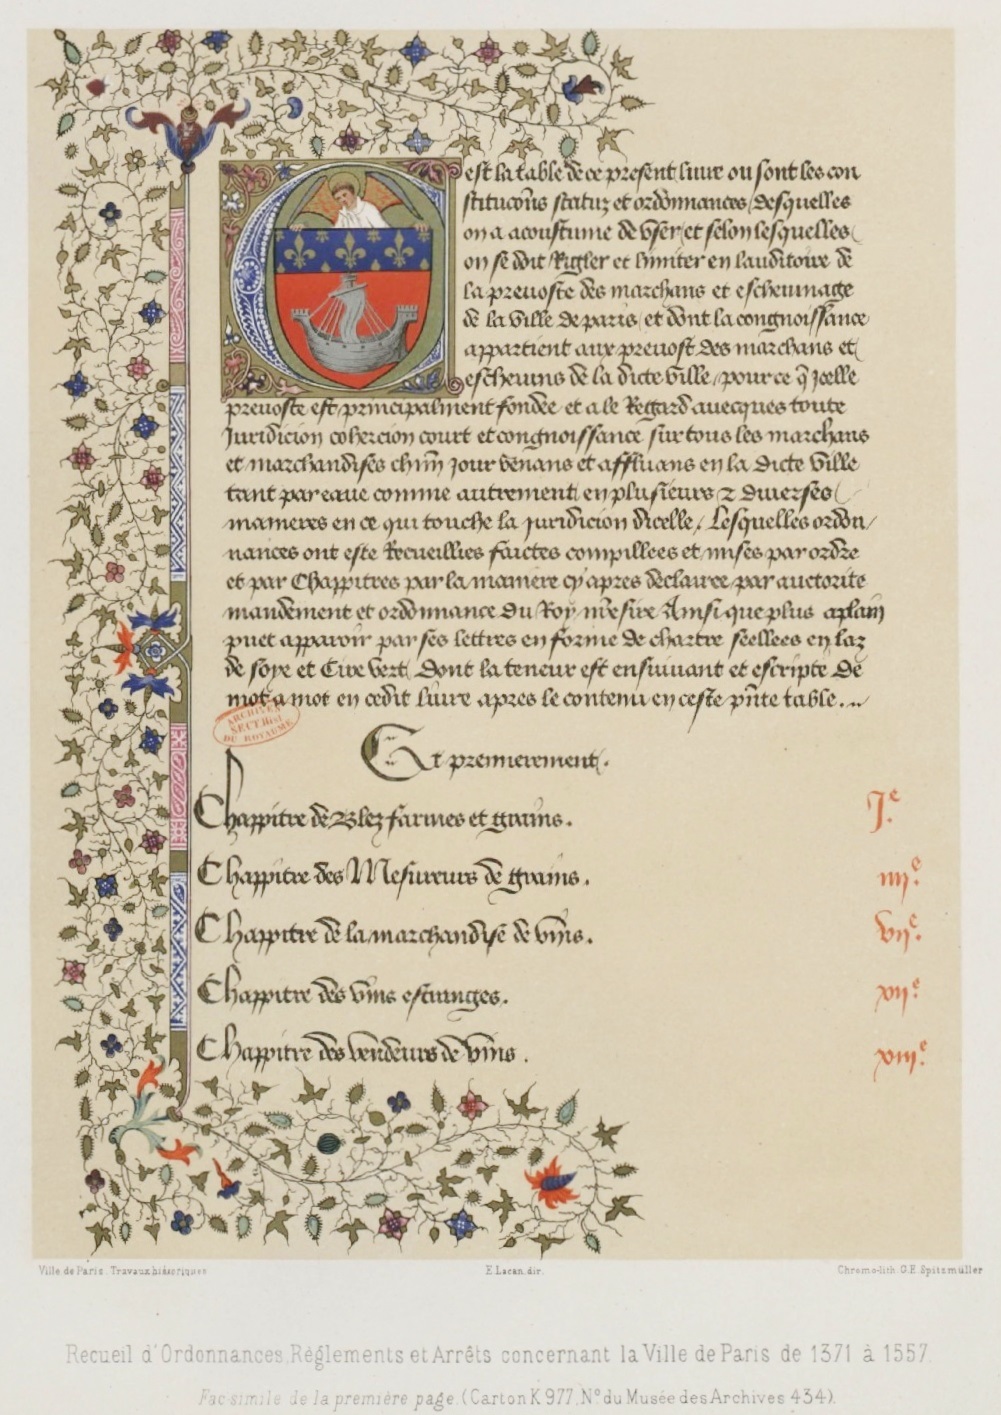 Cest la table de ce present livre ou sont les con
stitucõns statuz et ordonnances desquelles
on a acoustume de vser et selon lesquelles
on se doit Rigler et limiter en lauditoire de
la prevoste des marchans et eschevinage
de la ville de paris et dont la congnoissance
appartient aux prevost des marchans et
eschevins de la dicte ville pour ce q̃ Icelle
prevoste est principalment fondee et a le Regard avecques toute
Juridicion cohercion court et congnoissance sur tous les marchans
et marchandises chũn jour venans et affluans en la dicte ville
tant par eaue comme autrement en plusieurs et diverses
manieres en ce qui touche la juridicion dicelle Lesquelles ordon
nances ont este Recueillies faictes compillees et mises par ordre
et par Chappitres par la maniere cy apres declairee par auctorite
mandement et ordonnance du Roy nr̃e sire Ainsi que plus aplain
puet apparoir par ses lettres en forme de chartre seellees en laz
de soye et Cire vert Dont la teneur est ensuivant et escripte de
mot a mot en cedit livre apres le contenu en ceste pñte table..
ARCHIVES
SECT. Hist
DU ROYAUME
Et premierement.
Chappitre de Blez farines et grains. J.e
Chappitre des Mesureurs de grains. iiij.e
Chappitre de la marchandise de vins. vij.e
Chappitre des vins estranges. xij.e
Chappitre des vendeurs de vins. xiij.e
Ville de Paris. Travaux historiques
E. Lacan, dir.
Chromo-lith. G.E. Spitzmüller
Recueil d'Ordonnances, Règlements et Arrêts concernant la Ville de Paris de 1371 à 1557.
Fac-simile de la première page. (Carton K 977, No du Musée des Archives 434).